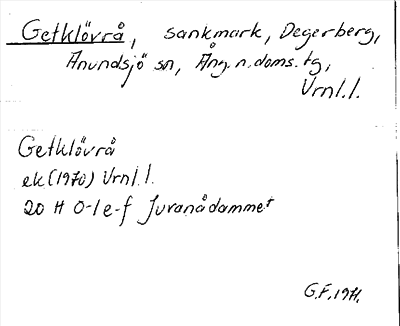 Getklövrå, sankmark, Degerberg,
Anundsjö sn, Ång. n. doms. tg,
Vrnl.l.
Getklövrå
ek (1970) Vrnl.l.
20 H 0-1 e-f Juranådammet
G.F. 1971.